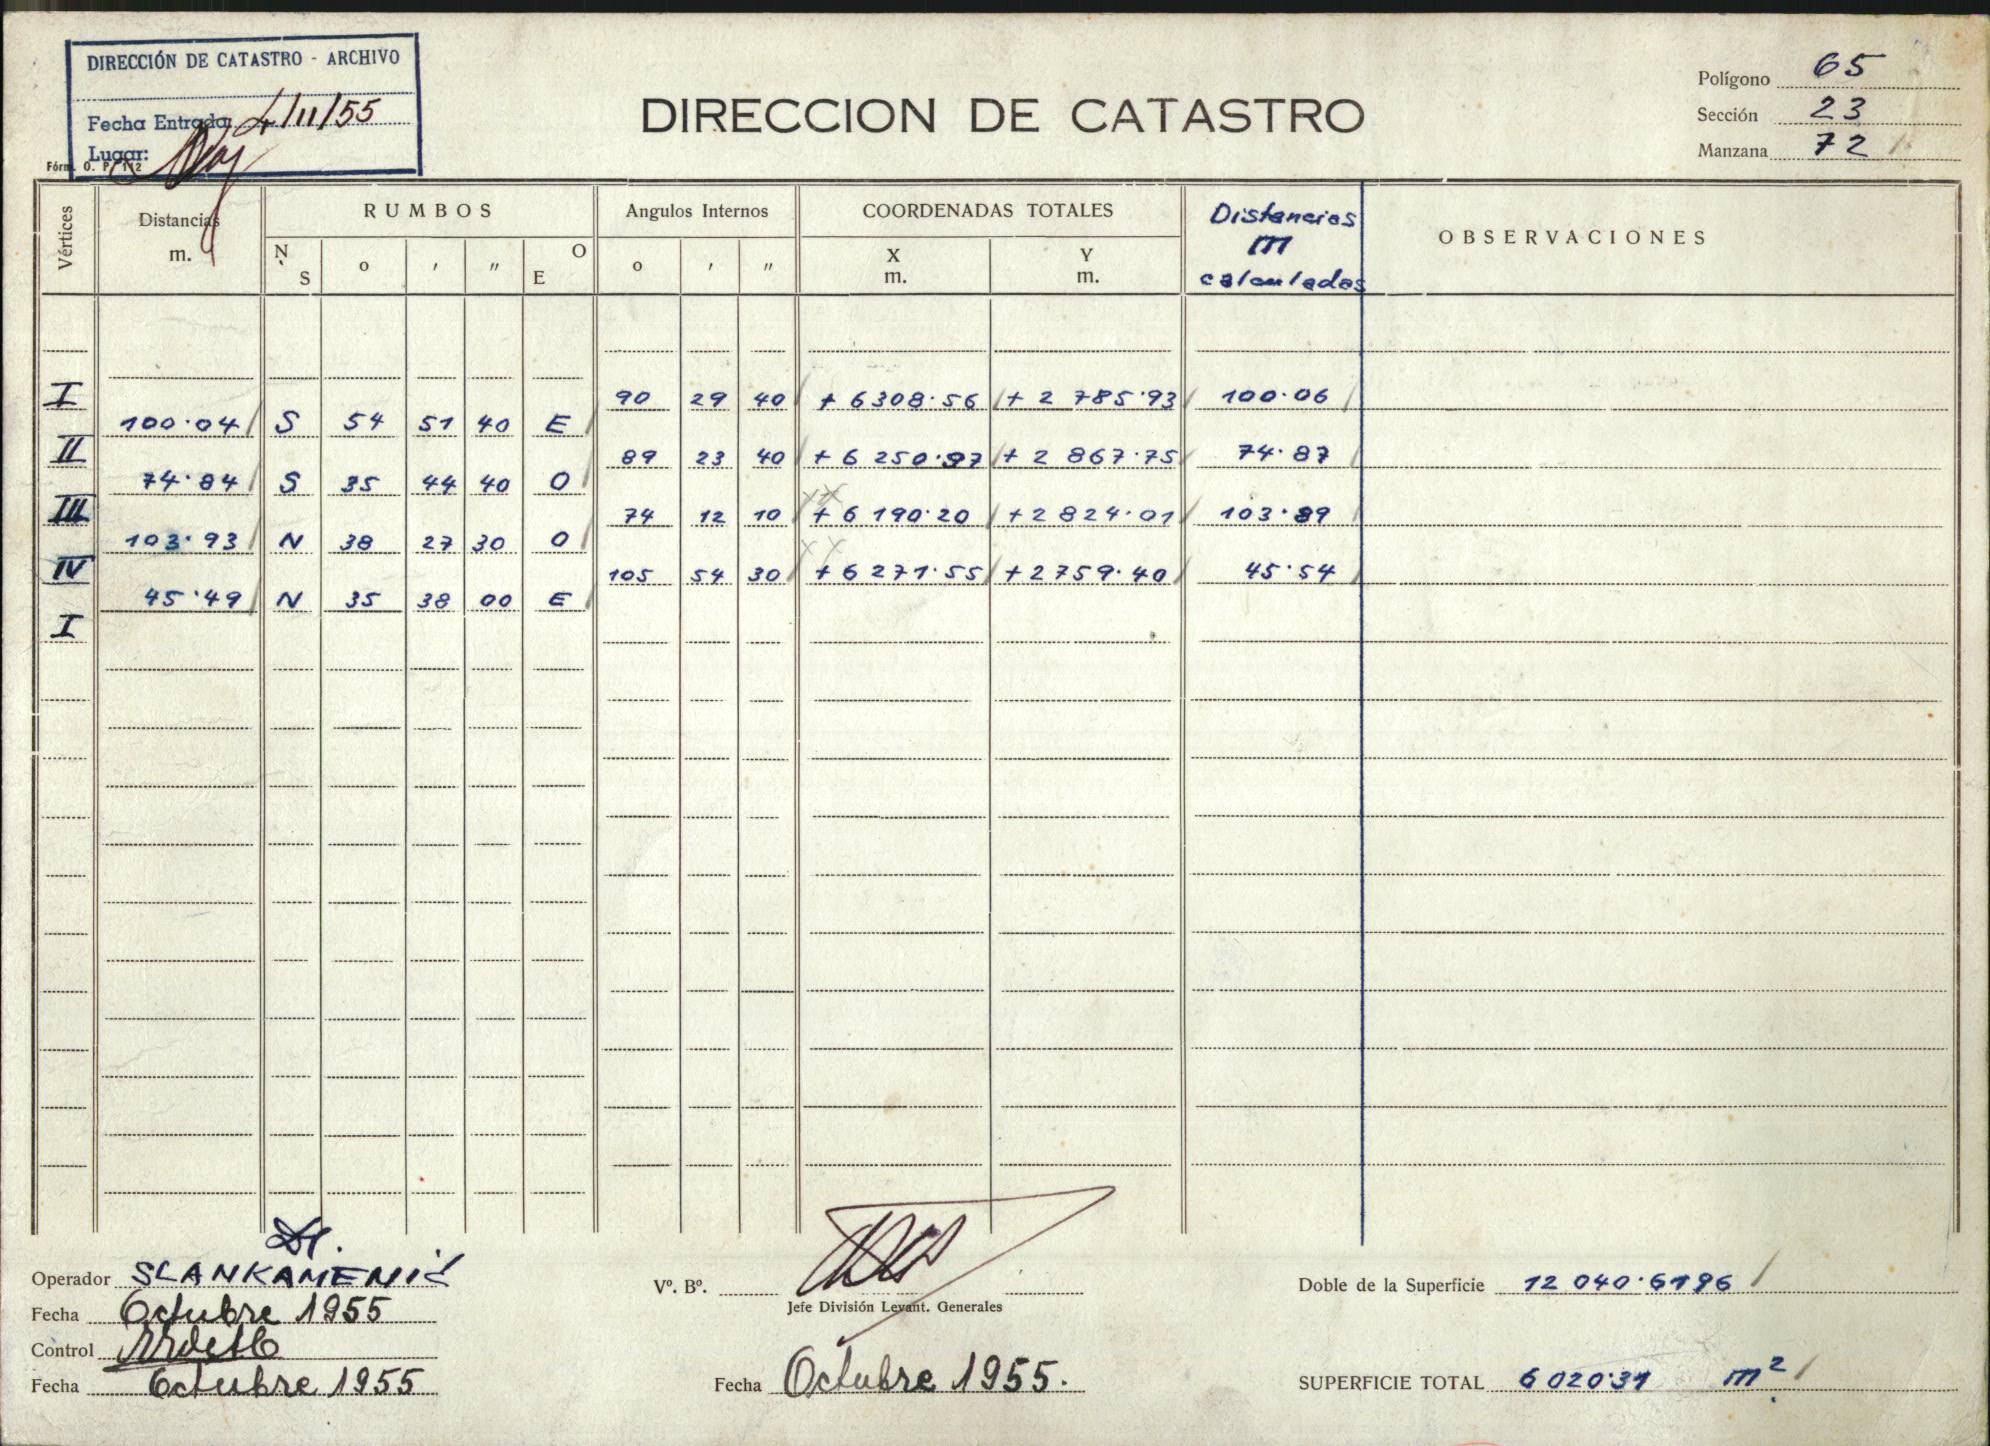 DIRECCIÓN DE CATASTRO - ARCHIVO
Fecha Entrada: 4/11/55
Lugar:
Fórm. O. P. 112
DIRECCION DE CATASTRO
Polígono 65
Sección 23
Manzana 72
Vértices
Distancias m.
RUMBOS
N S ° ′ ″ O E
Angulos Internos
° ′ ″
COORDENADAS TOTALES
X m.
Y m.
Distancias m calculadas
OBSERVACIONES
I 90 29 40 + 6308.56 + 2 785.93 100.06
100.04 S 54 51 40 E
II 89 23 40 + 6 250.97 + 2 867.75 74.87
74.84 S 35 44 40 O
III 74 12 10 + 6 190.20 + 2 824.01 103.89
103.93 N 38 27 30 O
IV 105 54 30 + 6 271.55 + 2759.40 45.54
45.49 N 35 38 00 E
I
Operador SLANKAMENIĆ
Fecha Octubre 1955
Control
Fecha Octubre 1955
Vº. Bº.
Jefe División Levant. Generales
Fecha Octubre 1955.
Doble de la Superficie 12 040.6196
SUPERFICIE TOTAL 6 020.31 m²